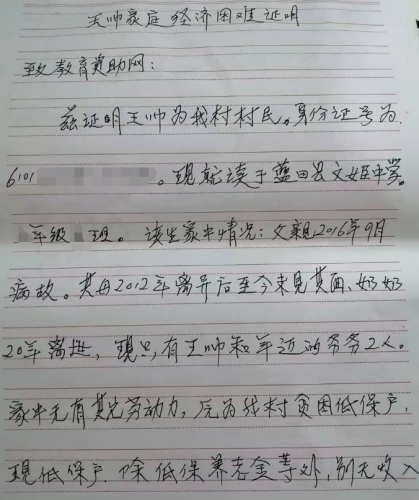 王帅家庭经济困难证明
致教育资助网：
兹证明王帅为我村村民。身份证号为
6101 。现就读于蓝田县文姬中学。
年级 班。该生家中情况：父亲2016年9月
病故。其母2012年离异后至今未见其面、奶奶
20年离世，现只有王帅和年迈的爷爷2人。
家中无有其它劳动力，原为我村贫困低保户，
现低保户.除低保养老金等外，别无收入